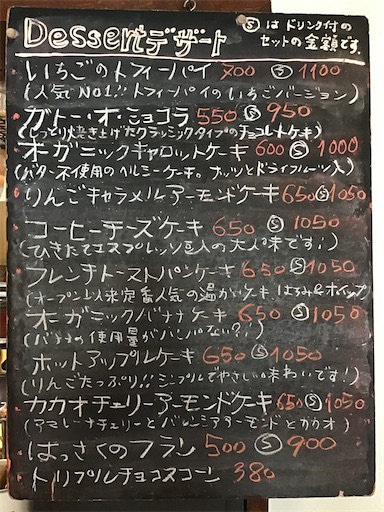 Dessert デザート
Ⓢは ドリンク付の
セットの金額です。
いちごのトフィーパイ 700 Ⓢ 1100
(人気NO1!! トフィーパイのいちごバージョン)
ガトー・オ・ショコラ 550 Ⓢ 950
(しっとり焼き上げたクラシックタイプのチョコレートケーキ)
オーガニックキャロットケーキ 600 Ⓢ 1000
(バター不使用のヘルシーケーキ。ナッツとドライフルーツ入)
りんごキャラメルアーモンドケーキ 650 Ⓢ 1050
コーヒーチーズケーキ 650 Ⓢ 1050
(ひきたてエスプレッソ の大人味です!)
フレンチトーストパンケーキ 650 Ⓢ 1050
(オープン以来定番人気の温かいケーキ はちみつ&ホイップ)
オーガニックバナナケーキ 650 Ⓢ 1050
(バナナの使用量がハンパない?!)
ホットアップルケーキ 650 Ⓢ 1050
(りんごたっぷり!! シンプルでやさしい味わいです!)
カカオチェリーアーモンドケーキ 650 Ⓢ 1050
(アマレーナチェリーとバレンシアアーモンドとカカオ)
はっさくのフラン 500 Ⓢ 900
トリプルチョコスコーン 380